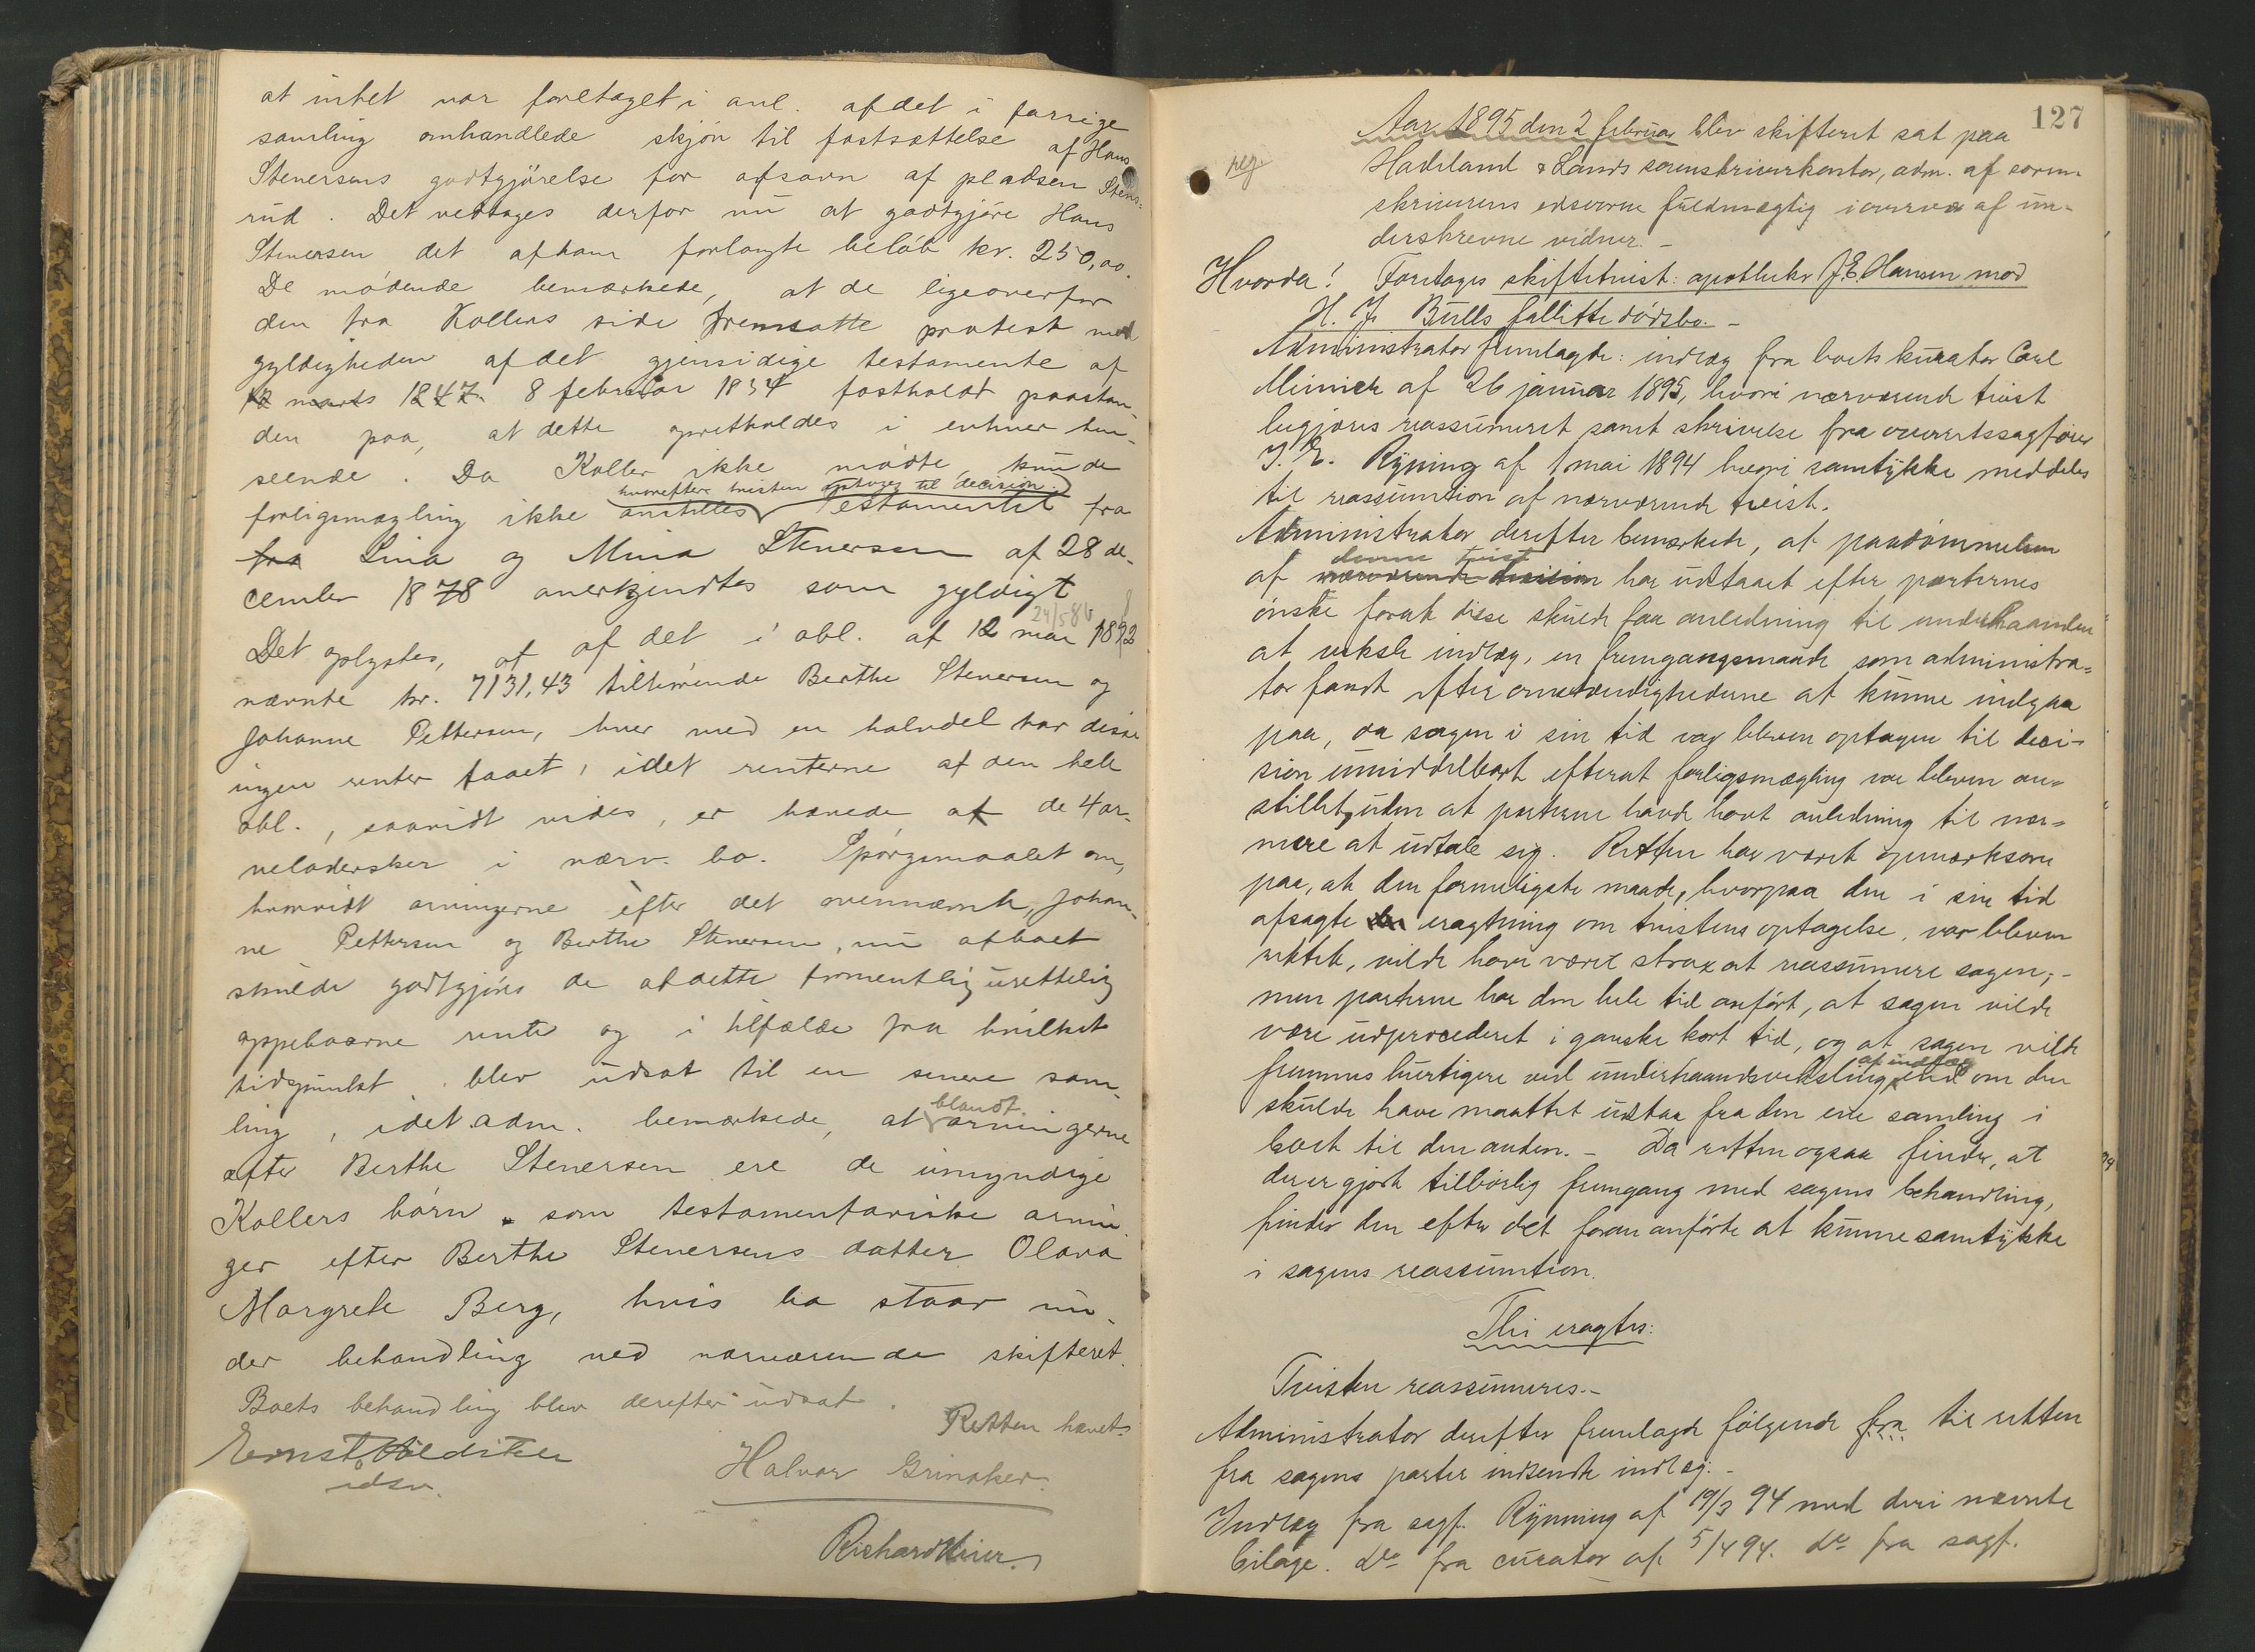 at intet var foretaget i anl. af det i forrige
samling omhandlede skjøn til fastsættelse af Hans
Stenersens godtgjörelse for afsavn af pladsen Stens-
rud. Det vedtages derfor nu at godtgjøre Hans
Stenersen det af ham forlangte beløb kr. 250,00.
De mødende bemærkede, at de ligeoverfor
den fra Kollers side fremsatte protest mod
gyldigheden af det gjensidige testamente af
12 marts 1847 8 februar 1854 fastholdt paastan-
den paa, at dette opretholdes i enhver hen-
seende. Da Koller ikke mødte, kunde
hvorefter tvisten optoges til decision.
forligsmægling ikke anstilles Testamentet fra
fra Lina og Mina Stenersen af 28 de-
cember 1878 anerkjendtes som gyldigt
24/5 86
Det oplystes, at af det i obl. af 12 mai 1892
nævnte kr. 7131,43 tilhørende Berthe Stenersen og
Johanne Pettersen, hver med en halvdel har disse
ingen renter faaet, idet renterne af den hele
obl., saavidt vides, er hævede af de 4 ar-
veladersker i nærv. bo. Spørgsmaalet om,
hvorvidt arvingerne efter det ovennævnte, Johan-
ne Pettersen og Berthe Stenersen, nu af boet
skulde godtgjöres de af dette formentlig urettelig
oppebaarne rente og i tilfælde fra hvilket
tidspunkt blev udsat til en senere sam-
ling, idet adm. bemærkede, at arvingerne
blandt
efter Berthe Stenersen ere de umyndige
Kollers børn som testamentariske arvin-
ger efter Berthe Stenersens datter Olava
Margrete Berg, hvis bo staar un-
der behandling ved nærværende skifteret.
Boets behandling blev derefter udsat.
Retten hævet.
Ernst
edsv.
Halvor Grinaker.
Richard
127
Aar 1895 den 2 februar blev skifteret sat paa
Hadeland & Lands sorenskriverkontor, adm. af soren-
skriverens edsvorne fuldmægtig i overvær af un-
derskrevne vidner. –
Hvorda! Foretages skiftetvist: apotheker J. E. Hansen mod
H. J. Bulls fallitte dødsbo. –
Administrator fremlagde: indlæg fra boets kurator Carl
af 26 januar 1895, hvori nærværende tvist
begjæres reassumeret samt skrivelse fra overretssagfører
Rynning af 1 mai 1894 hvori samtykke meddeles
til reassumtion af nærværende tvist.
Administrator derefter bemærkede, at paadömmelsen
denne tvist
af nærværende decision har udstaaet efter parternes
ønske forat disse skulde faa anledning til underhaanden
at veksle indlæg, en fremgangsmaade som administra-
tor fandt efter omstændighederne at kunne indgaa
paa, da sagen i sin tid var bleven optagen til deci-
sion umiddelbart efterat forligsmægling var bleven an-
stillet, uden at parterne havde havt anledning til nær-
mere at udtale sig. Retten har været opmærksom
paa, at den formeligste maade, hvorpaa den i sin tid
afsagte eragtning om tvistens optagelse, var bleven
rettet, vilde have været strax at reassumere sagen; –
men parterne har den hele tid anført, at sagen vilde
være udprocederet i ganske kort tid, og at sagen vilde
af indlæg
fremmes hurtigere ved underhaandsveksling end om den
skulde have maattet udstaa fra den ene samling i
boet til den anden. – Da retten ogsaa finder, at
der er gjort tilbörlig fremgang med sagens behandling,
finder den efter det foran anførte at kunne samtykke
i sagens reassumtion.
Thi eragtes:
Tvisten reassumeres. –
Administrator derefter fremlagde følgende fra til retten
fra sagens parter indsendte indlæg. –
Indlæg fra sagf. Rynning af 19/3 94 med deri nævnte
bilage. do fra curator af 5/4 94. do fra sagf.